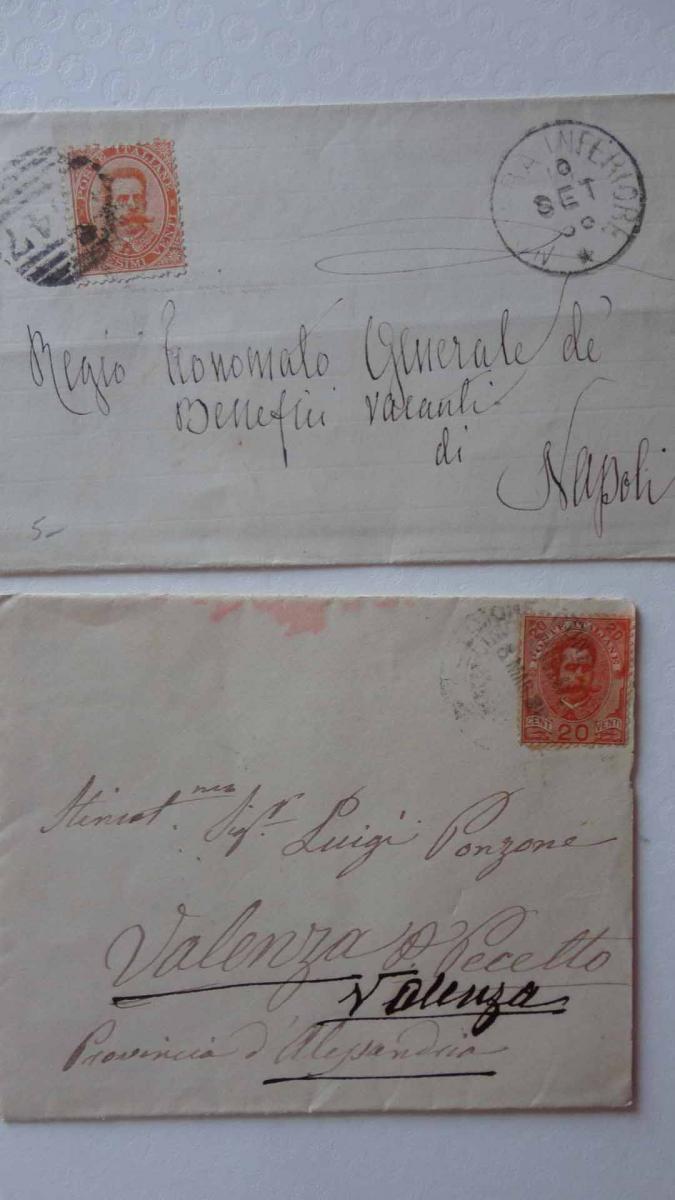 POSTE ITALIANE
VENTI
CENTESIMI
47
INFERIORE
Regio Economato Generale de'
Benefici vacanti
di
Napoli
5-
20 20
POSTE ITALIANE
CENT 20 VENTI
Sigr. Luigi Ponzone
Valenza Pecetto
Valenza
Provincia d'Alessandria